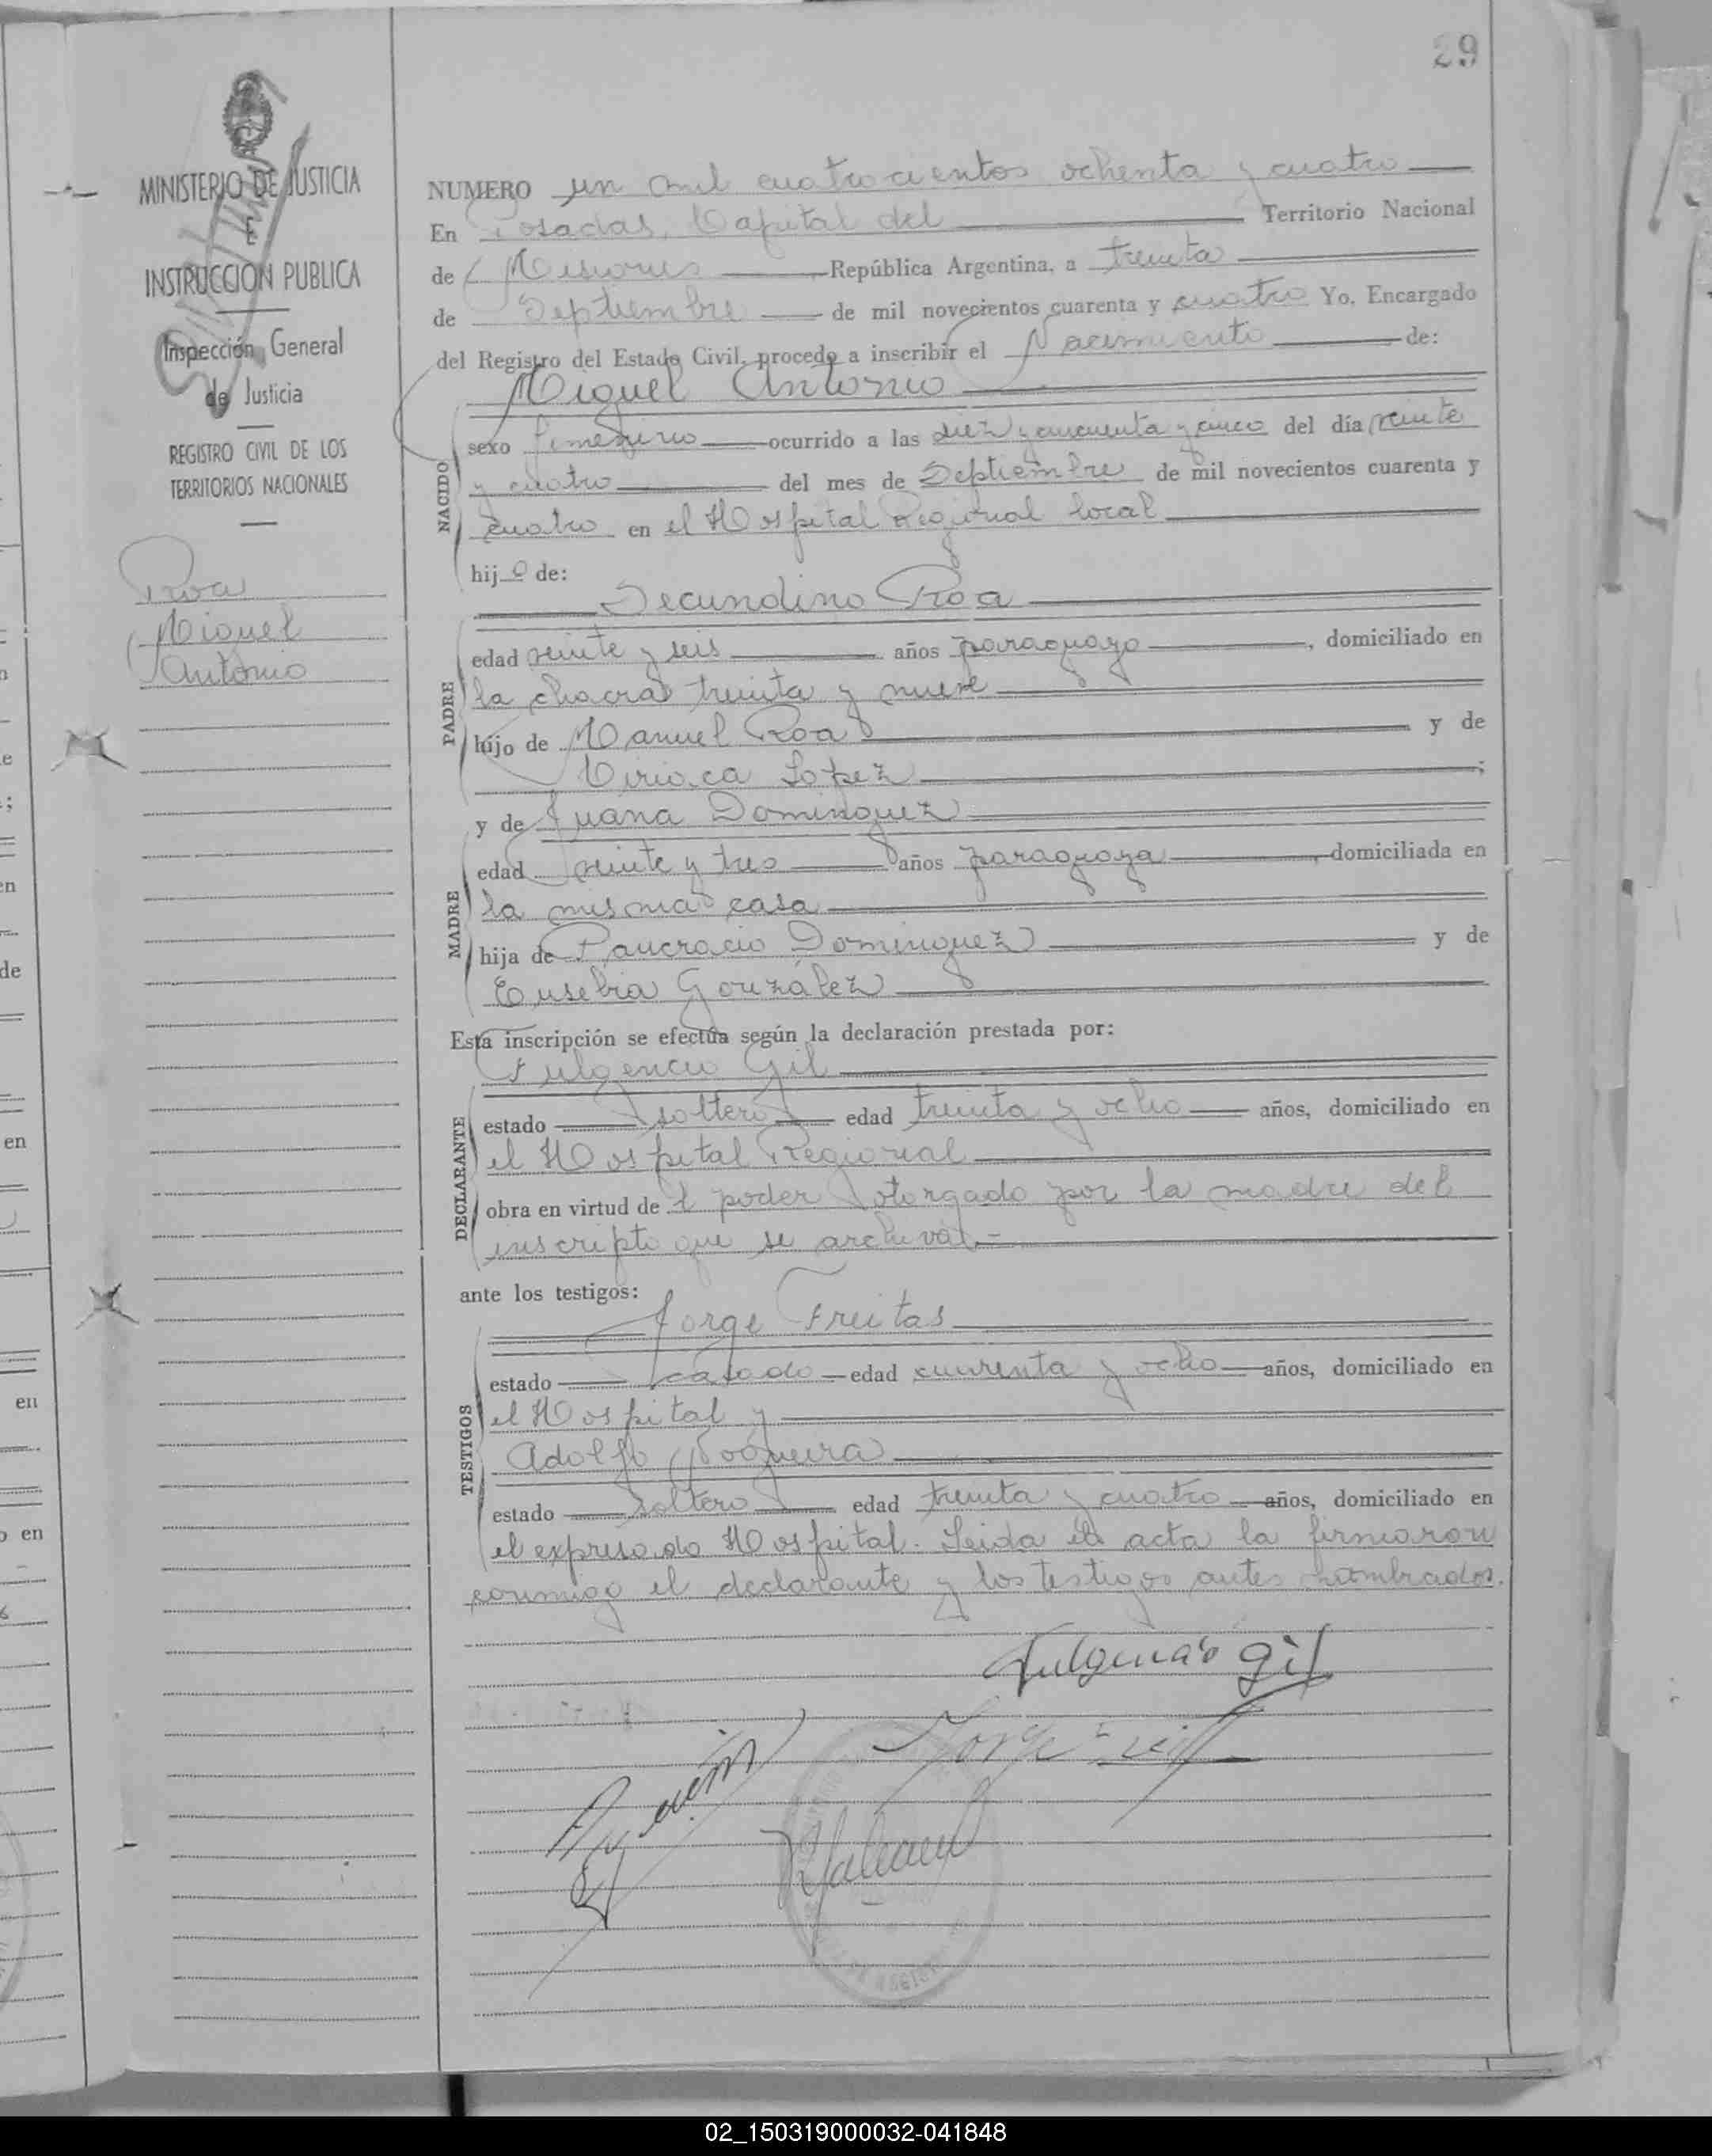 29
MINISTERIO DE JUSTICIA
E
INSTRUCCION PUBLICA
Inspección General
de Justicia
REGISTRO CIVIL DE LOS
TERRITORIOS NACIONALES
Roa
Miguel
Antonio
NUMERO un mil cuatrocientos ochenta y cuatro
En Posadas, Capital del Territorio Nacional
de Misiones República Argentina, a treinta
de Septiembre de mil novecientos cuarenta y cuatro Yo, Encargado
del Registro del Estado Civil, procedo a inscribir el Nacimiento de:
Miguel Antonio
NACIDO
sexo femenino ocurrido a las diez y cincuenta y cinco del día veinte
y cuatro del mes de Septiembre de mil novecientos cuarenta y
cuatro en el Hospital Regional local
hijo de:
Secundino Roa
PADRE
edad veinte y seis años paraguayo, domiciliado en
la chacra treinta y nueve
hijo de Manuel Roa y de
Ciriaca Lopez;
y de Juana Dominguez
MADRE
edad veinte y tres años paraguaya, domiciliada en
la misma casa
hija de Pancracio Dominguez y de
Eusebia González
Esta inscripción se efectúa según la declaración prestada por:
Fulgencio Gil
DECLARANTE
estado soltero edad treinta y ocho años, domiciliado en
el Hospital Regional
obra en virtud del poder otorgado por la madre del
inscripto que se archiva.-
ante los testigos:
Jorge Freitas
TESTIGOS
estado casado edad cuarenta y ocho años, domiciliado en
el Hospital y
Adolfo Nogueira
estado soltero edad treinta y cuatro años, domiciliado en
el expresado Hospital. Leida el acta la firmaron
conmigo el declarante y los testigos antes nombrados.
Fulgencio Gil
Jorge
02_150319000032-041848